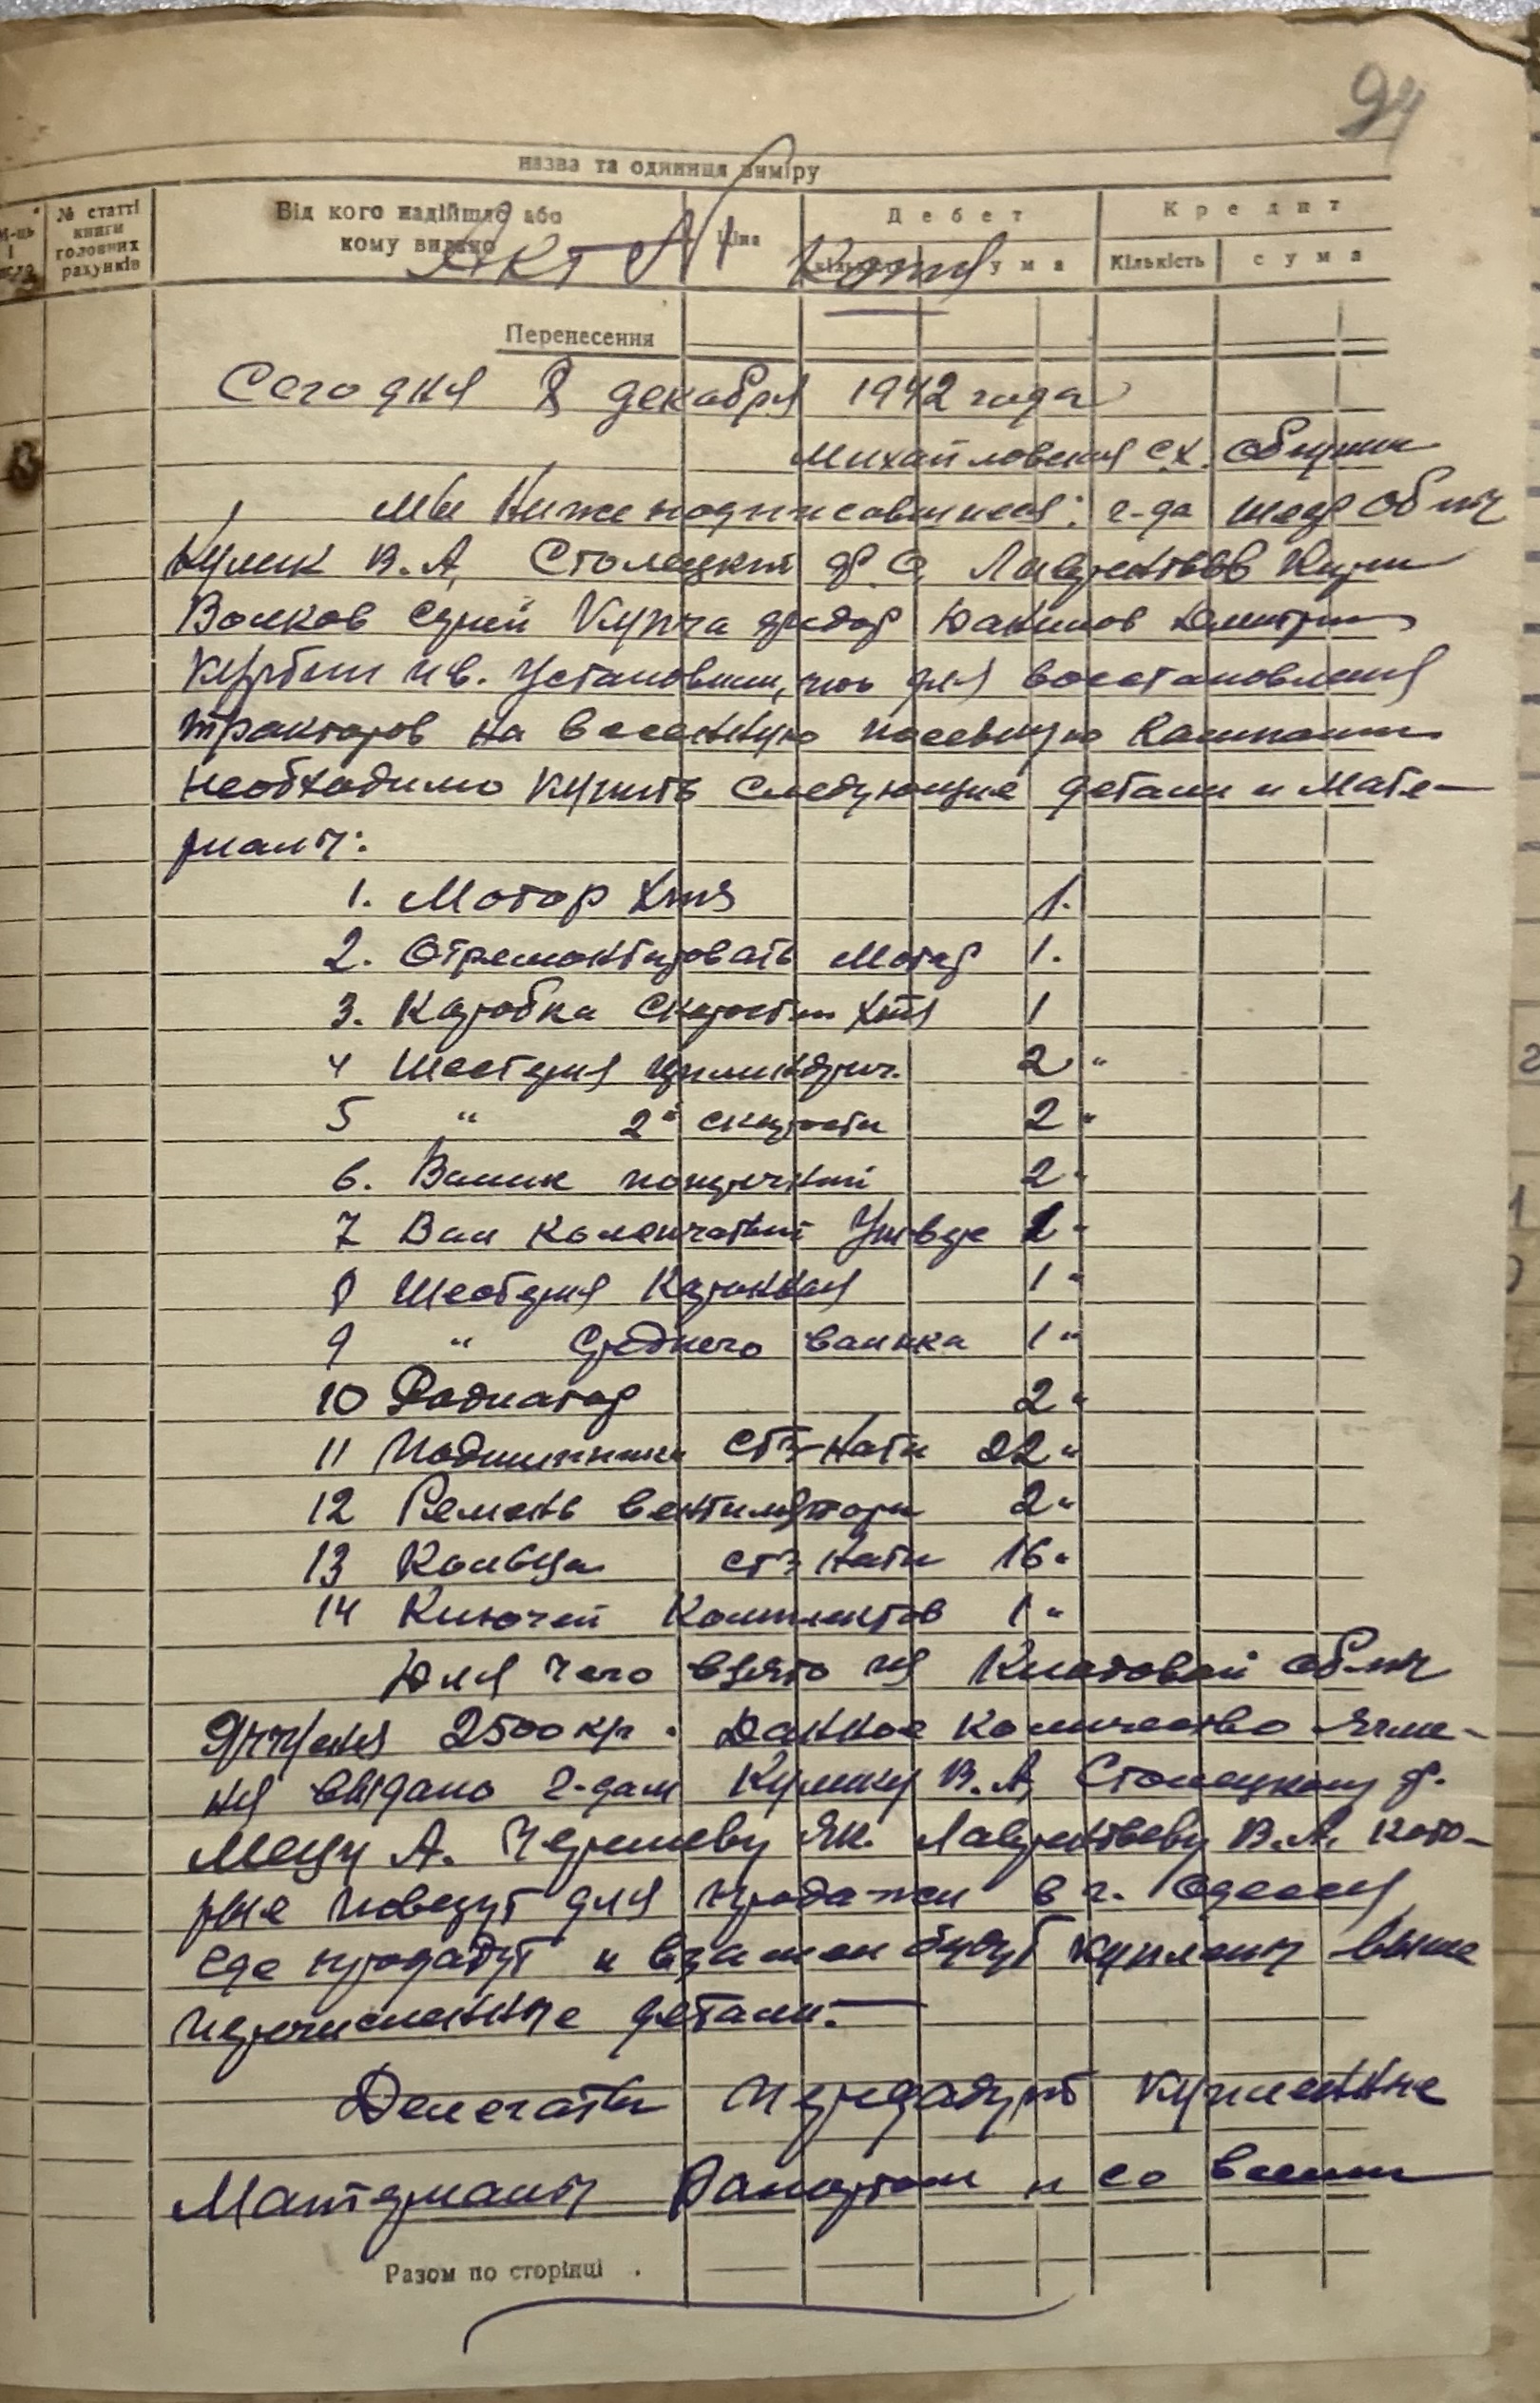 94
назва та одиниця виміру
№ статті книги головних рахунків
Від кого надійшло або кому видано
Ціна
Дебет
Кредит
Кількість
сума
Кількість
сума
Акт №1 Копия
Перенесення
Сегодня 8 декабря 1942 года
Михайловская с.х. община
Мы Нижеподписавшиеся: г-да
Кулик В.А. Столецкий Ф.
Волков Купча Федор Юакимов Дмитрий
Ив. Установили, что для восстановления
тракторов на весеннюю посевную Кампанию
необходимо купить следующие детали и Мате-
риалы:
1. Мотор ХТЗ 1.
2. Отремонтировать Мотор 1.
3. Каробка скорости ХТЗ 1
4 Шестерня цилиндрич. 2 "
5 " 2й скорости 2 "
6. Валик поперечный 2 "
7 Вал Коленчатый Универ 1 "
8 Шестерня Каринная 1 "
9 " Среднего валика 1 "
10 Радиатор 2 "
11 Подшипники СТЗ-Нати 22 "
12 Ремень вентилятора 2 "
13 Кольца СТЗ Нати 16 "
14 Ключей Комплектов 1 "
Для чего взято из Кладовой общ.
Ячменя 2500 кгр. Данное количество ячме-
ня выдано г-дам Кулику В.А. Столецкому Ф.
А. Як. Лаврентьеву В.А. кото-
рые повезут для продажи в г. Одесса
где продадут и взамен будут куплены выше
перечисленные детали.—
Делегаты передадут купленные
Материалы Рапортом и со всеми
Разом по сторінці